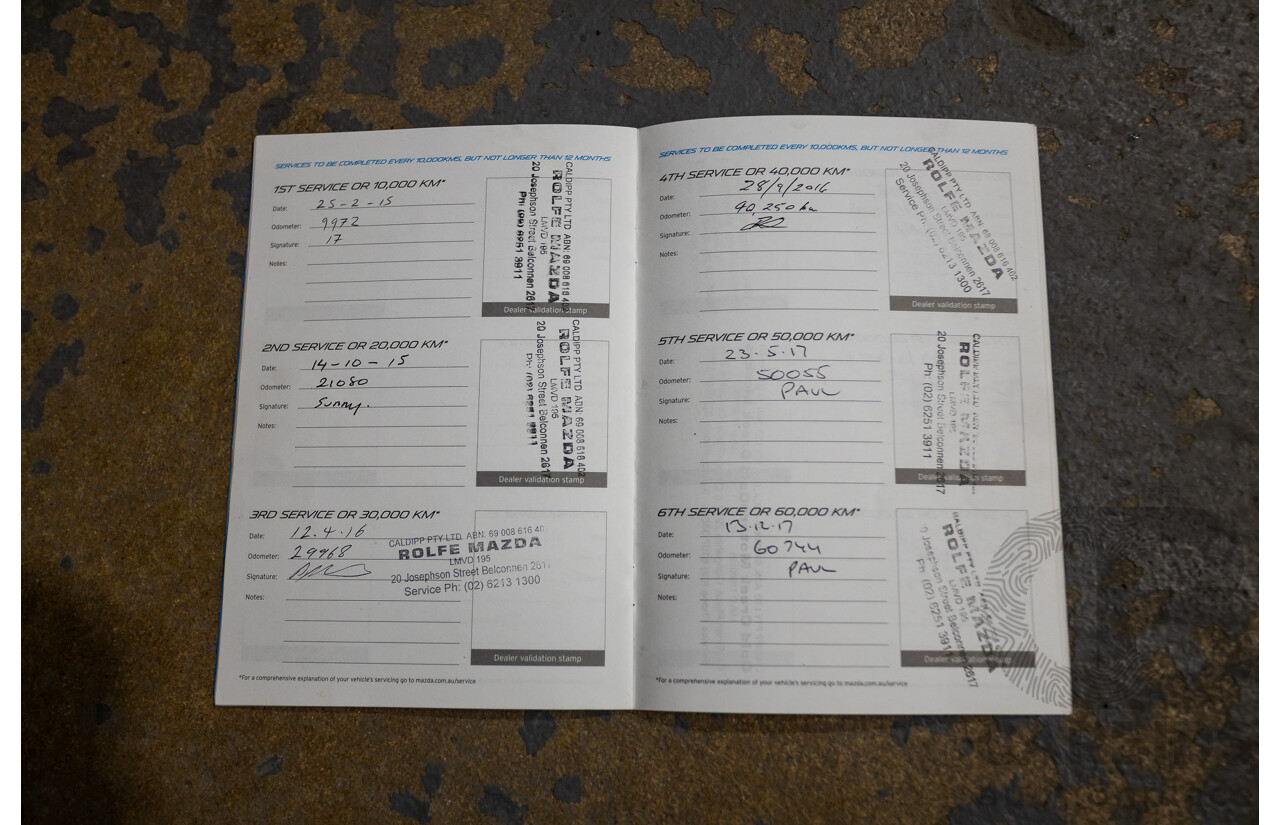 SERVICES TO BE COMPLETED EVERY 10,000KMS, BUT NOT LONGER THAN 12 MONTHS
1ST SERVICE OR 10,000 KM*
Date: 25-2-15
Odometer: 9972
Signature: 17
Notes:
CALDIPP PTY LTD ABN: 69 008 616 4
ROLFE MAZDA
LMVD 195
20 Josephson Street Belconnen 261
Ph: (02) 6251 3911
Dealer validation stamp
2ND SERVICE OR 20,000 KM*
Date: 14-10-15
Odometer: 21080
Signature: Sunny.
Notes:
CALDIPP PTY LTD ABN: 69 008 616 402
ROLFE MAZDA
LMVD 195
20 Josephson Street Belconnen 2617
Ph: (02) 6251 3911
Dealer validation stamp
3RD SERVICE OR 30,000 KM*
Date: 12.4.16
Odometer: 29968
Signature:
Notes:
CALDIPP PTY LTD ABN: 69 008 616 40
ROLFE MAZDA
LMVD 195
20 Josephson Street Belconnen 2617
Service Ph: (02) 6213 1300
Dealer validation stamp
*For a comprehensive explanation of your vehicle's servicing go to mazda.com.au/service
SERVICES TO BE COMPLETED EVERY 10,000KMS, BUT NOT LONGER THAN 12 MONTHS
4TH SERVICE OR 40,000 KM*
Date: 28/9/2016
Odometer: 40,250 km
Signature:
Notes:
CALDIPP PTY LTD ABN: 69 008 616 402
ROLFE MAZDA
LMVD 195
20 Josephson Street Belconnen 2617
Service Ph: (02) 6213 1300
Dealer validation stamp
5TH SERVICE OR 50,000 KM*
Date: 23.5.17
Odometer: 50055
Signature: PAUL
Notes:
CALDIPP PTY LTD
ROLFE MAZDA
LMVD 195
20 Josephson Street Belconnen 2617
Ph: (02) 6251 3911
Dealer validation stamp
6TH SERVICE OR 60,000 KM*
Date: 13.12.17
Odometer: 60744
Signature: PAUL
Notes:
CALDIPP PTY LTD
ROLFE MAZDA
LMVD 195
Josephson Street Belconnen 2617
Ph: (02) 6251 391
Dealer validation stamp
*For a comprehensive explanation of your vehicle's servicing go to mazda.com.au/service